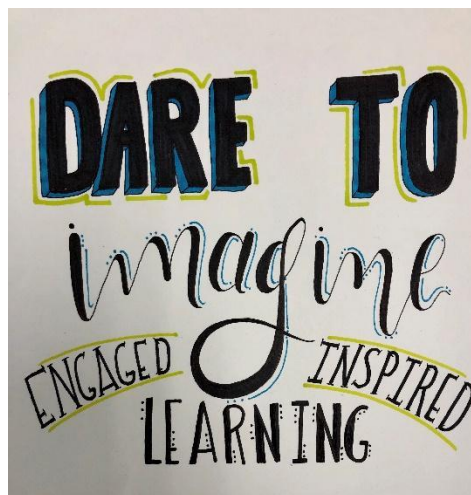 DARE TO
imagine
ENGAGED INSPIRED
LEARNING